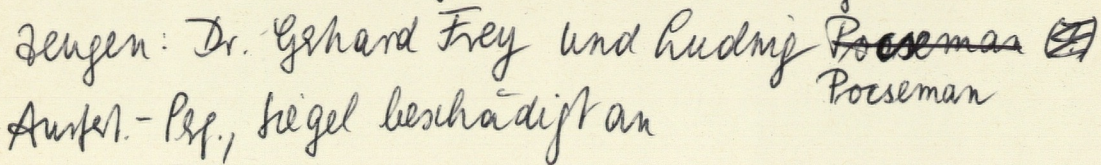 Zeugen: Dr. Gerhard Frey und Ludwig Pocseman
Pocseman
Ausfert.-Perg., Siegel beschädigt an